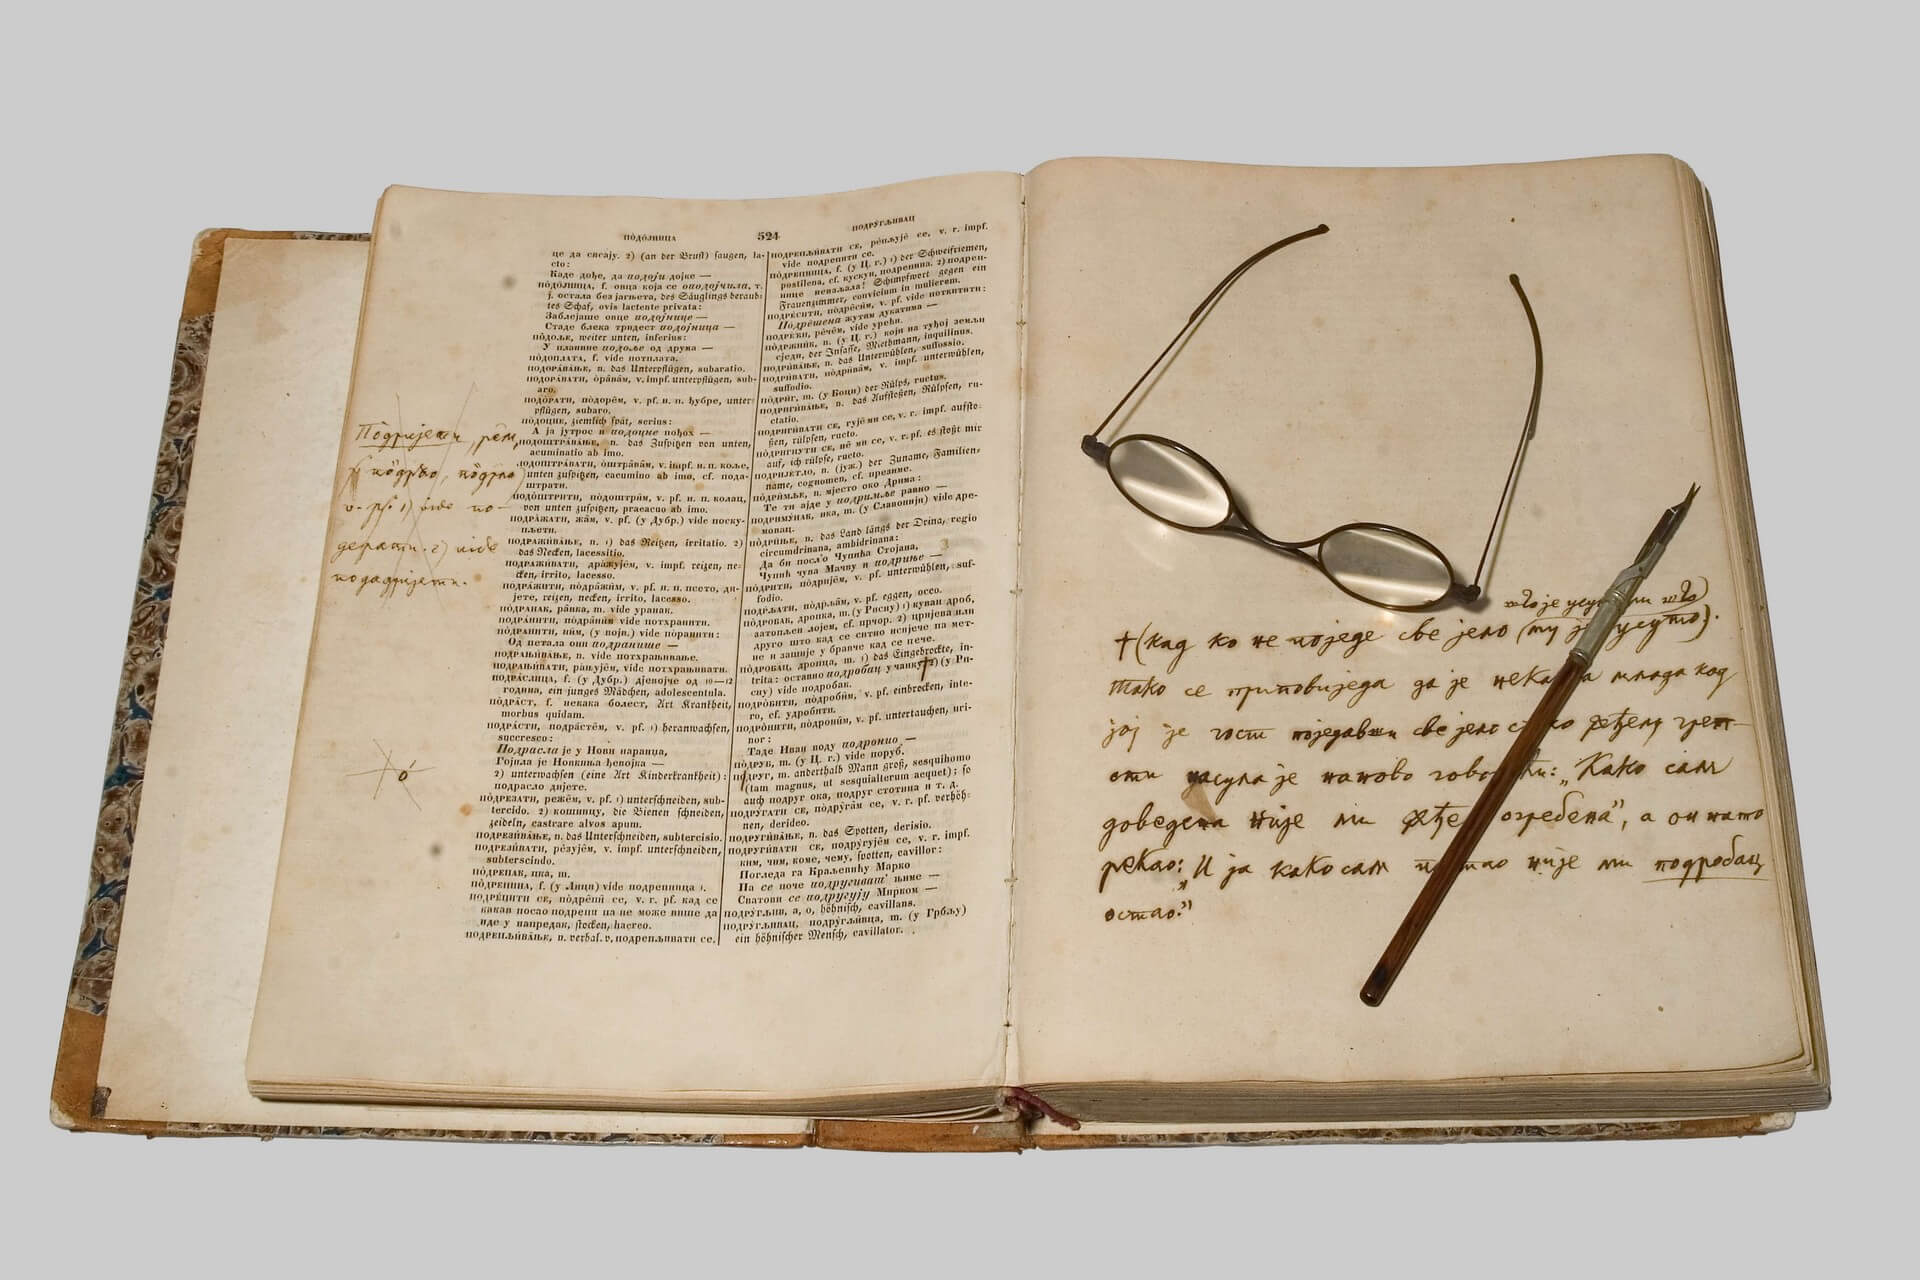 подо́јница 524 подру́гљивац
це да сисају. 2) (an der Brust) saugen, la-
cto:
Каде дође, да подоји дојке —
по́до̄јница, f. овца која се оподојчила, т.
ј. остала без јагњета, des Säuglings beraub-
tes Schaf, ovis lactente privata:
Заблејаше овце подојнице —
Стаде блека тридест подојница —
по̀доље, weiter unten, inferius:
У планине подоље од друма —
по̀доплата, f. vide потплата.
подора́вање, n. das Unterpflügen, subaratio.
подора́вати, о̀ра̄ва̄м, v. impf. unterpflügen, sub-
aro.
подо́рати, по̀доре̄м, v. pf. н. п. ђубре, unter-
pflügen, subaro.
по̀доцне, ziemlich spät, serius:
А ја јутрос и подоцне пођох —
подоштра́вање, n. das Zuspitzen von unten,
acuminatio ab imo.
подоштра́вати, о̀штра̄ва̄м, v. impf. н. п. коље,
unten zuspitzen, cacumino ab imo, cf. пода-
штрати.
подо̀штрити, по̀доштрӣм, v. pf. н. п. колац,
von unten zuspitzen, praeacuo ab imo.
подра́жати, жа̄м, v. pf. (у Дубр.) vide поску-
пљети.
подражи́вање, n. 1) das Reitzen, irritatio. 2)
das Necken, lacessitio.
подражи́вати, дра̀жује̄м, v. impf. reizen, ne-
cken, irrito, lacesso.
подра́жити, по̀дра̄жӣм, v. pf. н. п. псето, ди-
јете, reizen, necken, irrito, lacesso.
по̀дранак, ра̄нка, m. vide уранак.
подра́нити, по̀дра̄нӣм vide потхранити.
подра́нити, нӣм, (у пјеж.) vide поранити:
Од петала они подранише —
подрањи́вање, n. vide потхрањивање.
подрањи́вати, ра̀њује̄м, vide потхрањивати.
по́драслица, f. (у Дубр.) дјевојче од 10—12
година, ein junges Mädchen, adolescentula.
по̀драст, f. некака болест, Art Krankheit,
morbus quidam.
подра́сти, подра́сте̄м, v. pf. 1) heranwachsen,
succresco:
Подрасла је у Нови наранџа,
Гојила је Новкиња ђевојка —
2) unterwachsen (eine Art Kinderkrankheit):
подрасло дијете.
по̀дрезати, реже̄м, v. pf. 1) unterschneiden, sub-
tercido. 2) кошницу, die Bienen schneiden,
zeideln, castrare alvos apum.
подрези́вање, n. das Unterschneiden, subtercisio.
подрези́вати, рѐзује̄м, v. impf. unterschneiden,
subterscindo.
по̀дрепак, пка, m.
по̀дрепина, f. (у Лици) vide подрепница 1.
подре́пити се, по̀дре̄пӣ се, v. r. pf. кад се
какав посао подрепи па не може више да
иде у напредак, stocken, haereo.
подрепљи́вање, n. verbal. v. подрепљивати се.
подрепљи́вати се, рѐпљује̄ се, v. r. impf.
vide подрепити се.
по̀дрепница, f. (у Ц. г.) 1) der Schweifriemen,
postilena, cf. кускун, подрепина. 2) подреп-
нице неваљала! Schimpfwort gegen ein
Frauenzimmer, convicium in mulierem.
подре́сити, по̀дре̄сӣм, v. pf. vide поткитити:
Подрешена жутим дукатима —
подре́ћи, ре́че̄м, vide урећи.
по̀држник, n. (у Ц. г.) који на туђој земљи
сједи, der Insasse, Miethmann, inquilinus.
подри́вање, n. das Unterwühlen, suffossio.
подри́вати, по̀дрӣва̄м, v. impf. unterwühlen,
suffodio.
по̀дриг, m. (у Боци) der Rülps, ructus.
подриги́вање, n. das Aufstoßen, Rülpsen, ru-
ctatio.
подриги́вати се, гује̄ ми се, v. r. impf. aufsto-
ßen, rülpsen, ructo.
подри́гнути се, не̄ ми се, v. r. pf. es stoßt mir
auf, ich rülpse, ructo.
подрије́тло, n. (јуж.) der Zuname, Familien-
name, cognomen, cf. презиме.
по̀дримље, n. мјесто око Дрима:
Те ти ајде у подримље равно —
подриму́нак, нка, m. (у Славонији) vide дре-
мовац.
по̀дриње, n. das Land längs der Drina, regio
circumdrinana, ambidrinana:
Да би посл'о Чупића Стојана,
Чупић чува Мачву и подриње —
по̀дрити, по̀дрије̄м, v. pf. unterwühlen, suf-
fodio.
подр́љати, по̀др̄ља̄м, v. pf. eggen, occo.
по̀дробак, дропка, m. (у Рисну) 1) куван дроб,
затопљен лојем, cf. прчор. 2) цријева или
друго што кад се ситно исијече па мет-
не и зашије у бравче кад се пече.
подро̀бац, дропца, m. 1) das Eingebrockte, in-
trita: оставио подробац у чанку. 2) (у Ри-
сну) vide подробак.
подро́бити, по̀дробӣм, v. pf. einbrocken, inte-
ro, cf. удробити.
подро́нити, по̀дронӣм, v. pf. untertauchen, uri-
nor:
Таде Иван воду подронио —
подруб, m. (у Ц. г.) vide поруб.
по̀друг, m. anderthalb Mann groß, sesquihomo
(tam magnus, ut sesquialterum aequet); so
auch подруг ока, подруг стотина и т. д.
подру́гати се, по̀дрӯга̄м се, v. r. pf. verhöh-
nen, derideo.
подруги́вање, n. das Spotten, derisio.
подруги́вати се, подру̀гује̄м се, v. r. impf.
ким, чим, коме, чему, spotten, cavillor:
Погледа га Краљевићу Марко
Па се поче подругиват' њиме —
Сватови се подругују Мирком —
по̀дрӯгљив, а, о, höhnisch, cavillans.
подру́гљивац, подру́гљивца, m. (у Грбљу)
ein höhnischer Mensch, cavillator.
Подријети, рем,
подръо, подрла
v. pf. 1) vide по-
дерати. 2) vide
подадријети.
о́
што је усуто
†(кад ко не поједе све јело (ту је усуто).
Тако се приповиједа да је нека млада код
јој је гост поједавши све јело
сти усула је наново говорећи: „Како сам
доведена није ми огребена", а он на то
рекао: „И ја како сам постао није ми подробац
остао."